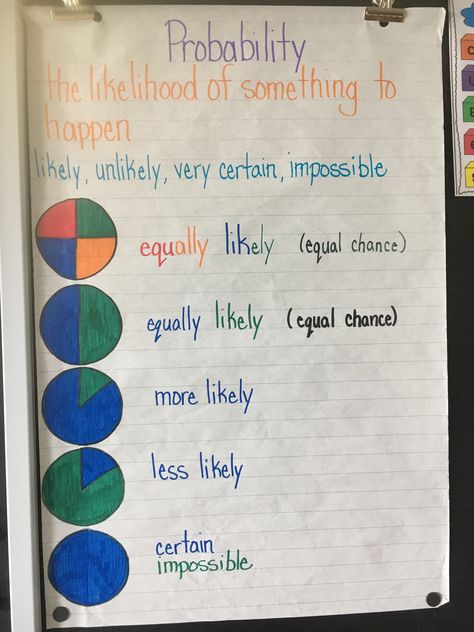 Probability
the likelihood of something to
happen
likely, unlikely, very certain, impossible
equally likely (equal chance)
equally likely (equal chance)
more likely
less likely
certain
impossible